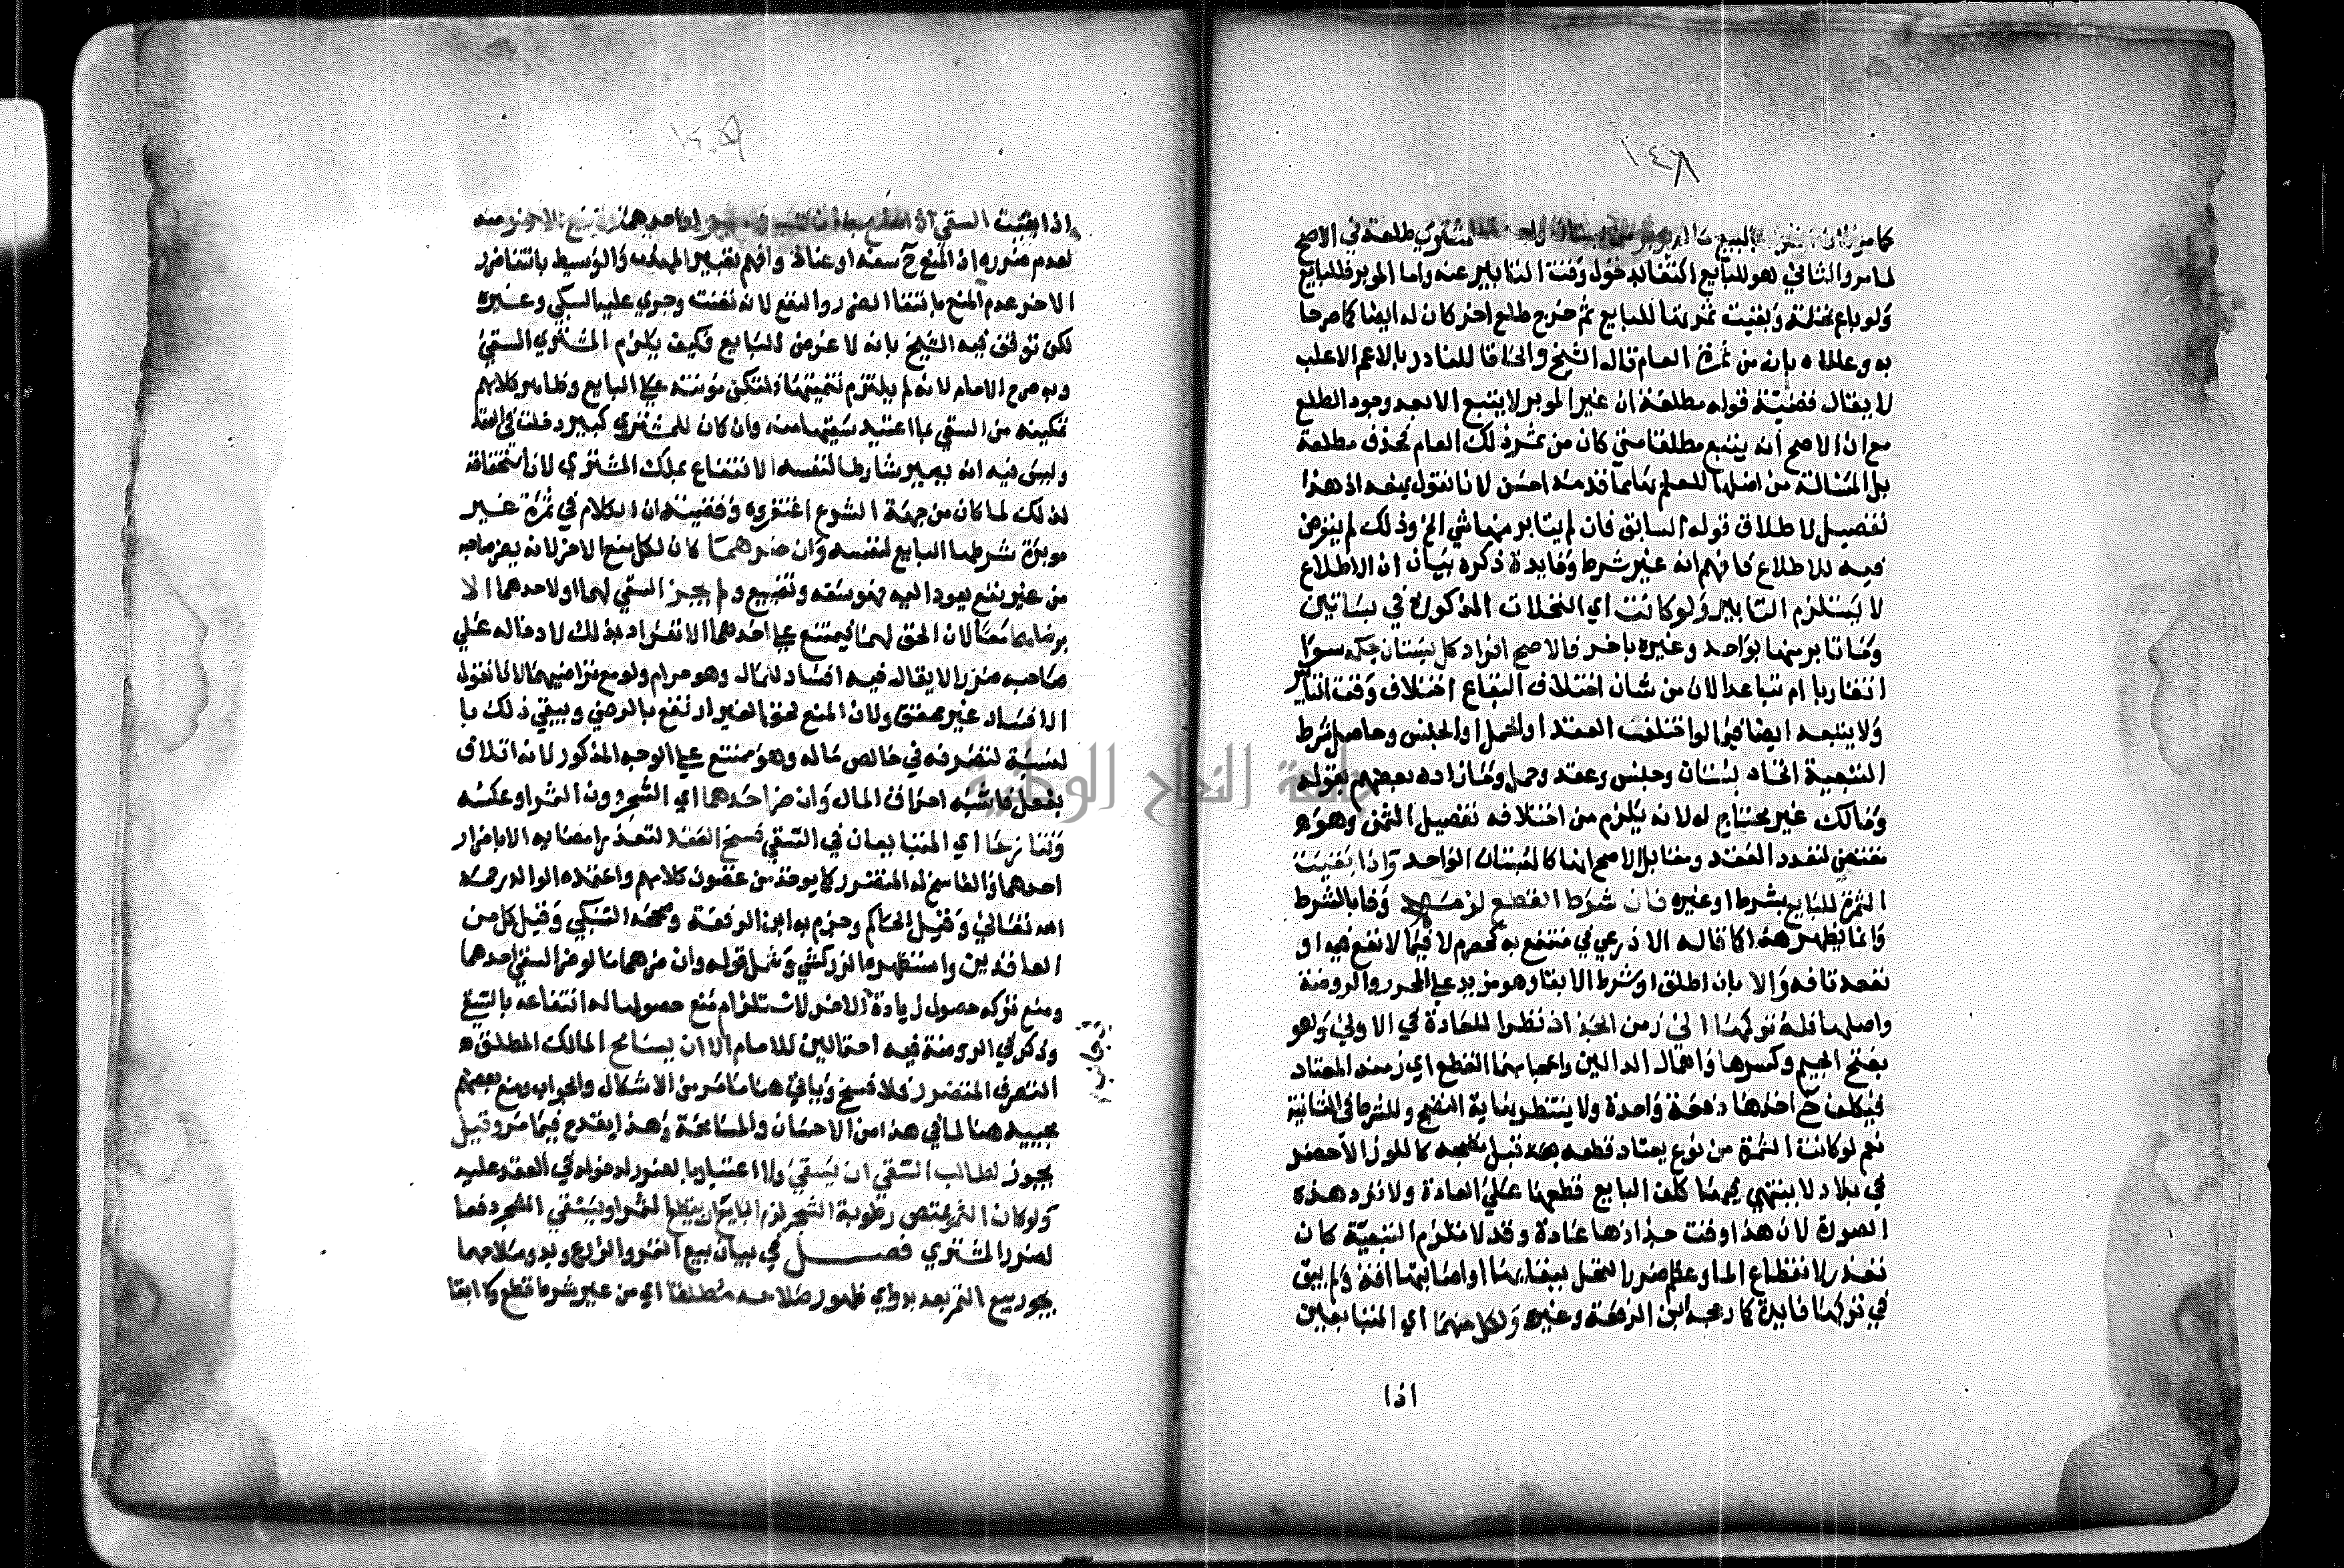 كما مر بالبيع ما لم يوبر من بستان واحد مشتري طلعه في الاصح
لما مر والثاني هو للبايع اكتفا بدخول وقت التابير عنه واما الموبر فللبايع
ولو باع نخلة وبقيت ثمرتها للبايع ثم خرج طلع اخر كان له ايضا كما صرحا
به وعللاه بانه من ثمرة العام قال الشيخ والحاقا للنادر بالاعم الاغلب
لا يقال قضية قوله مطلعة ان غير الموبر لا يتبع الا بعد وجود الطلع
مع ان الاصح انه يتبع مطلقا متى كان من ثمر ذلك العام فحذف مطلعة
بل المسالة من اصلها للعلم بها مما قدمه احسن لانا نقول بنعه اذ هذا
تفصيل لاطلاق قوله السابق فان لم يتابر منها شي الخ وذلك لم يتعرض
فيه للاطلاع فافهم انه غير شرط وفايدة ذكره بيان ان الاطلاع
لا يستلزم التابير ولو كانت اي النخلات المذكورة في بساتين
وما تابر منها بواحد وغيره باخر فالاصح افراد كل بستان بحكمه سوا
اتقاربا ام تباعدا لان من شان اختلاف البقاع اختلاف وقت التابير
ولا يتبعه ايضا فيما لو اختلف العقد او الحمل او الجنس وحاصل شرط
التبعية اتحاد بستان وجنس وعقد وحمل وما زاده بعضهم بقوله
ومالك غير محتاج له لانه يلزم من اختلافه تفصيل الثمن وهو
مقتض لتعدد العقد ومقابل الاصح انها كالبستان الواحد واذا بقيت
الثمرة للبايع بشرط او غيره فان شرط القطع لزمه وفا بالشرط
وانما يظهر هذا كما قاله الاذرعي في منتفع به كحصرم لا فيما لا نفع فيه او
نفعه تافه والا بان اطلق او شرط الابقا وهو مزيد على المحرر والروضة
واصلها فله تركها الى زمن الجذاذ نظرا للعادة في الاولى وهو
بفتح الجيم وكسرها واهمال الدالين واعجامهما القطع اي زمنه المعتاد
فيكلف ح اخذها دفعة واحدة ولا ينتظر نهاية النضج وللشرط في الثانية
نعم لو كانت الثمرة من نوع يعتاد قطعه قبل نضجه كاللوز الاخضر
في بلاد لا ينتهي فيها كلف البايع قطعها على العادة ولا ترد هذه
الصورة لان هذا وقت جذاذها عادة وقد لا تلزم التبقية كان
تعذر لانقطاع الما وعظم ضرر النخل ببقايها او اصابتها افة ولم يبق
في تركها فايدة كما رجحه ابن الرفعة وغيره ولكل منهما اي المتبايعين
اذا
اذا بقيت السقي ان انتفع به الشجر او احدهما ولا يمنع الاخر منه
لعدم ضرره اذ المنع ح سفه او عناد وافهم تعبير المهذب والوسيط بانتفا ضرر
الاخر عدم المنع بانتفا الضرر والنفع لانه تعنت وجرى عليه السبكي وغيره
لكن توقف فيه الشيخ بانه لا غرض للبايع فكيف يلزم المشتري السقي
وبه صرح الامام لانه لم يلتزم تنميتها فلتكن مونته على البايع وظاهر كلامهم
تمكينه من السقي بما اعتيد سقيها منه وان كان للمشتري كبير دخلت في العقد
وليس فيه انه يصير شارطا لنفسه الانتفاع بملك المشتري لان استحقاقه
لذلك لما كان من جهة الشرع اغتفروه وقضيته ان الكلام في ثمرة غير
موبرة شرطها البايع لنفسه وان ضرهما كان لكل منع الاخر لانه يضر صاحبه
من غير نفع يعود اليه فهو سفه وتضييع ولم يجز السقي لهما او لاحدهما الا
برضاهما معا لان الحق لهما فيمتنع على احدهما الانفراد بذلك لادخاله على
صاحبه ضررا لا يقال فيه افساد للمال وهو حرام ولو مع تراضيهما لانا نقول
الافساد غير محقق ولان المنع لحق الغير ارتفع بالرضى ويبقى ذلك با
لنسبة لتصرفه في خالص ماله وهو ممتنع على الوجه المذكور لانه اتلاف
بفعل فاشبه احراق المال وان ضر احدهما اي الشجر دون الثمر او عكسه
وتنازعا اي المتبايعان في السقي فسخ العقد لتعذر امضايه الا باضرار
احدهما والفاسخ له المتضرر كما يوخذ من غضون كلامهم واعتمده الوالد رحمه
الله تعالى وقيل الحاكم وجزم به ابن الرفعة وصححه السبكي وقيل كل من
العاقدين واستظهره الزركشي وشمل قوله وان ضرهما ما لو ضر السقي احدهما
ومنع تركه حصول زيادة الاخر لاستلزام منع حصولها له انتفاعه بالسقي
وذكر في الروضة فيه احتمالين للامام الا ان يسامح المالك المطلق
التصرف المتضرر فلا فسخ وياتي هنا ما مر من الاشكال والجواب ومنع بعضهم
مجييه هنا لما في هذا من الاحسان والمسامحة وهذا يقدح فيما مر وقيل
يجوز لطالب السقي ان يسقي ولا اعتبار بالضرر لدخوله في العقد عليه
ولو كان الثمر يمتص رطوبة الشجر لزم البايع ان يقطع الثمر او يسقي الشجر دفعا
لضرر المشتري فصل في بيان بيع الثمر والزرع وبدو صلاحهما
يجوز بيع الثمر بعد بدو اي ظهور صلاحه مطلقا اي من غير شرط قطع ولا ابقا